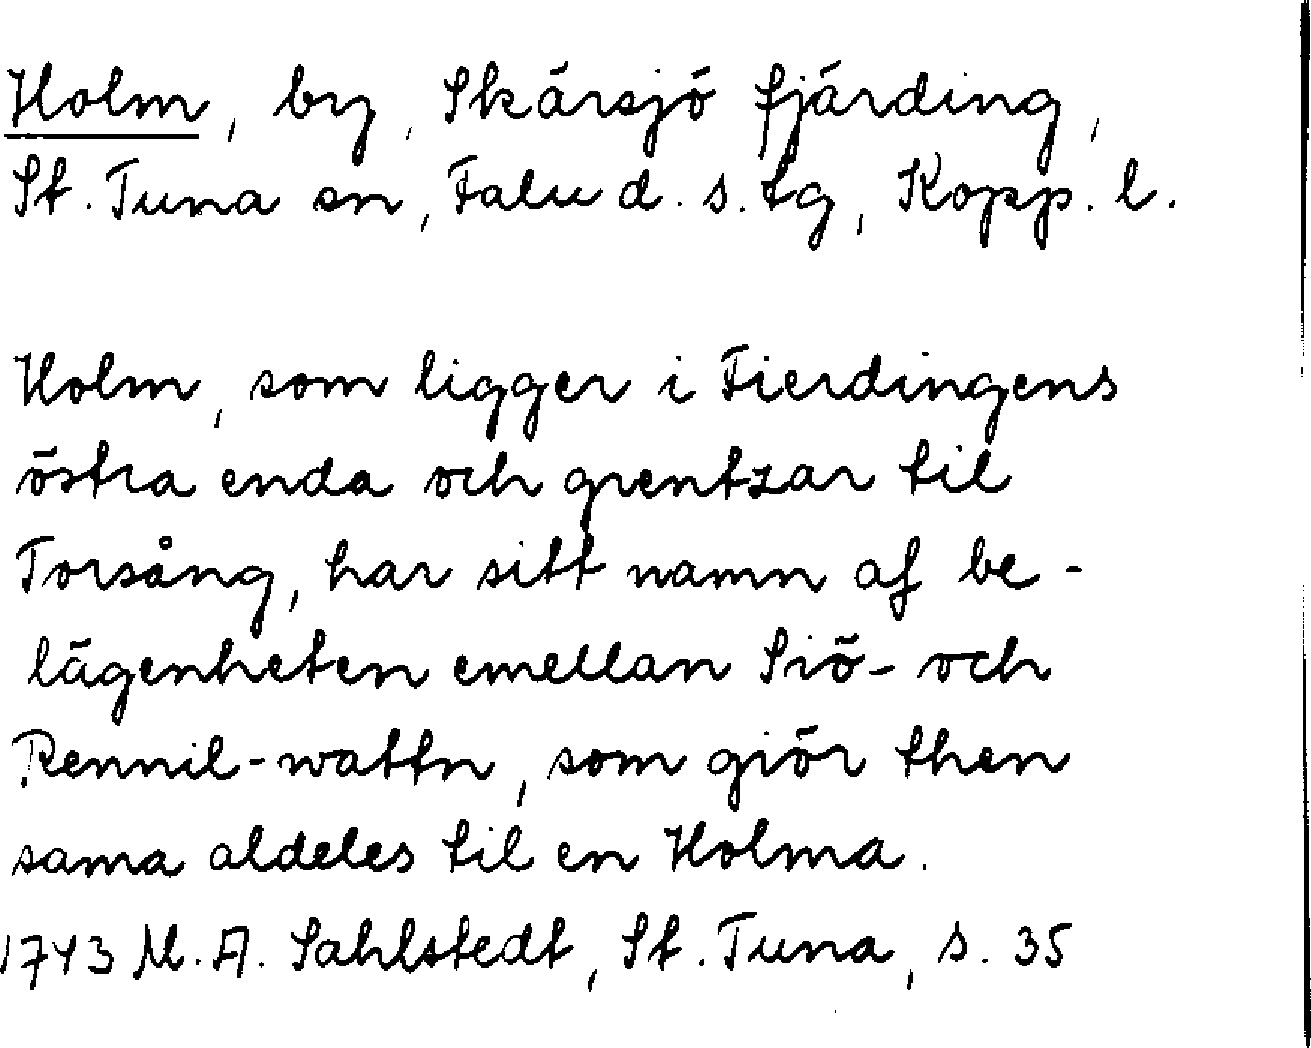 Holm, by, Skärsjö fjärding,
St. Tuna sn, Falu d. s. tg, Kopp. l.
Holm, som ligger i Fierdingens
östra enda och grentzar til
Torsång, har sitt namn af be-
lägenheten emellan Siö- och
Rennil-wattn, som giör then
sama aldeles til en Holma.
1743 M. A. Sahlstedt, St. Tuna, s. 35